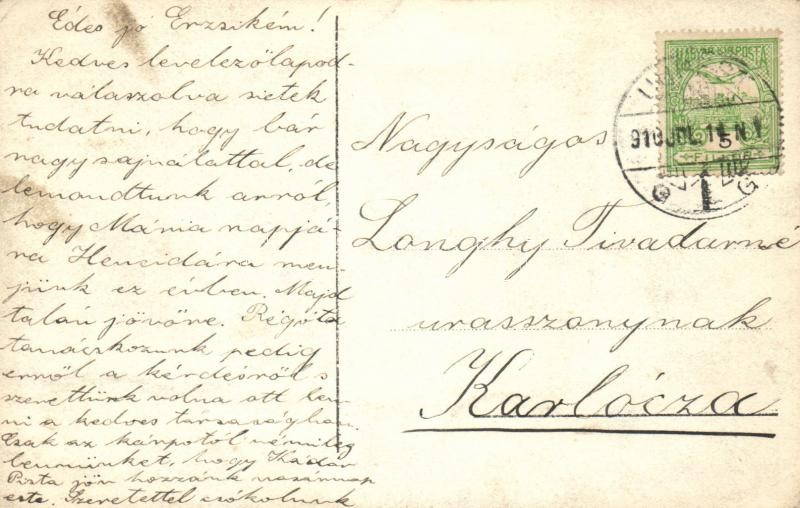 Édes jó Erzsikém!
Kedves levelezőlapod-
ra válaszolva sietek
tudatni, hogy bár
nagy sajnálattal, de
lemondtunk arról,
hogy Mánia napjá-
ra Hencidára men-
jünk ez évben. Majd
talán jövőre. Régóta
tanácskozunk pedig
erről a kérdésről s
szerettünk volna ott len-
ni a kedves társaságban.
Csak az kárpótol némileg
bennünket, hogy Kádár
Pista jön hozzánk vasárnap
este. Szeretettel csókolunk
MAGYAR KIR. POSTA
910 JUL. 11. N 1
5
Nagyságos
Longhy Tivadarné
urasszonynak
Karlócza